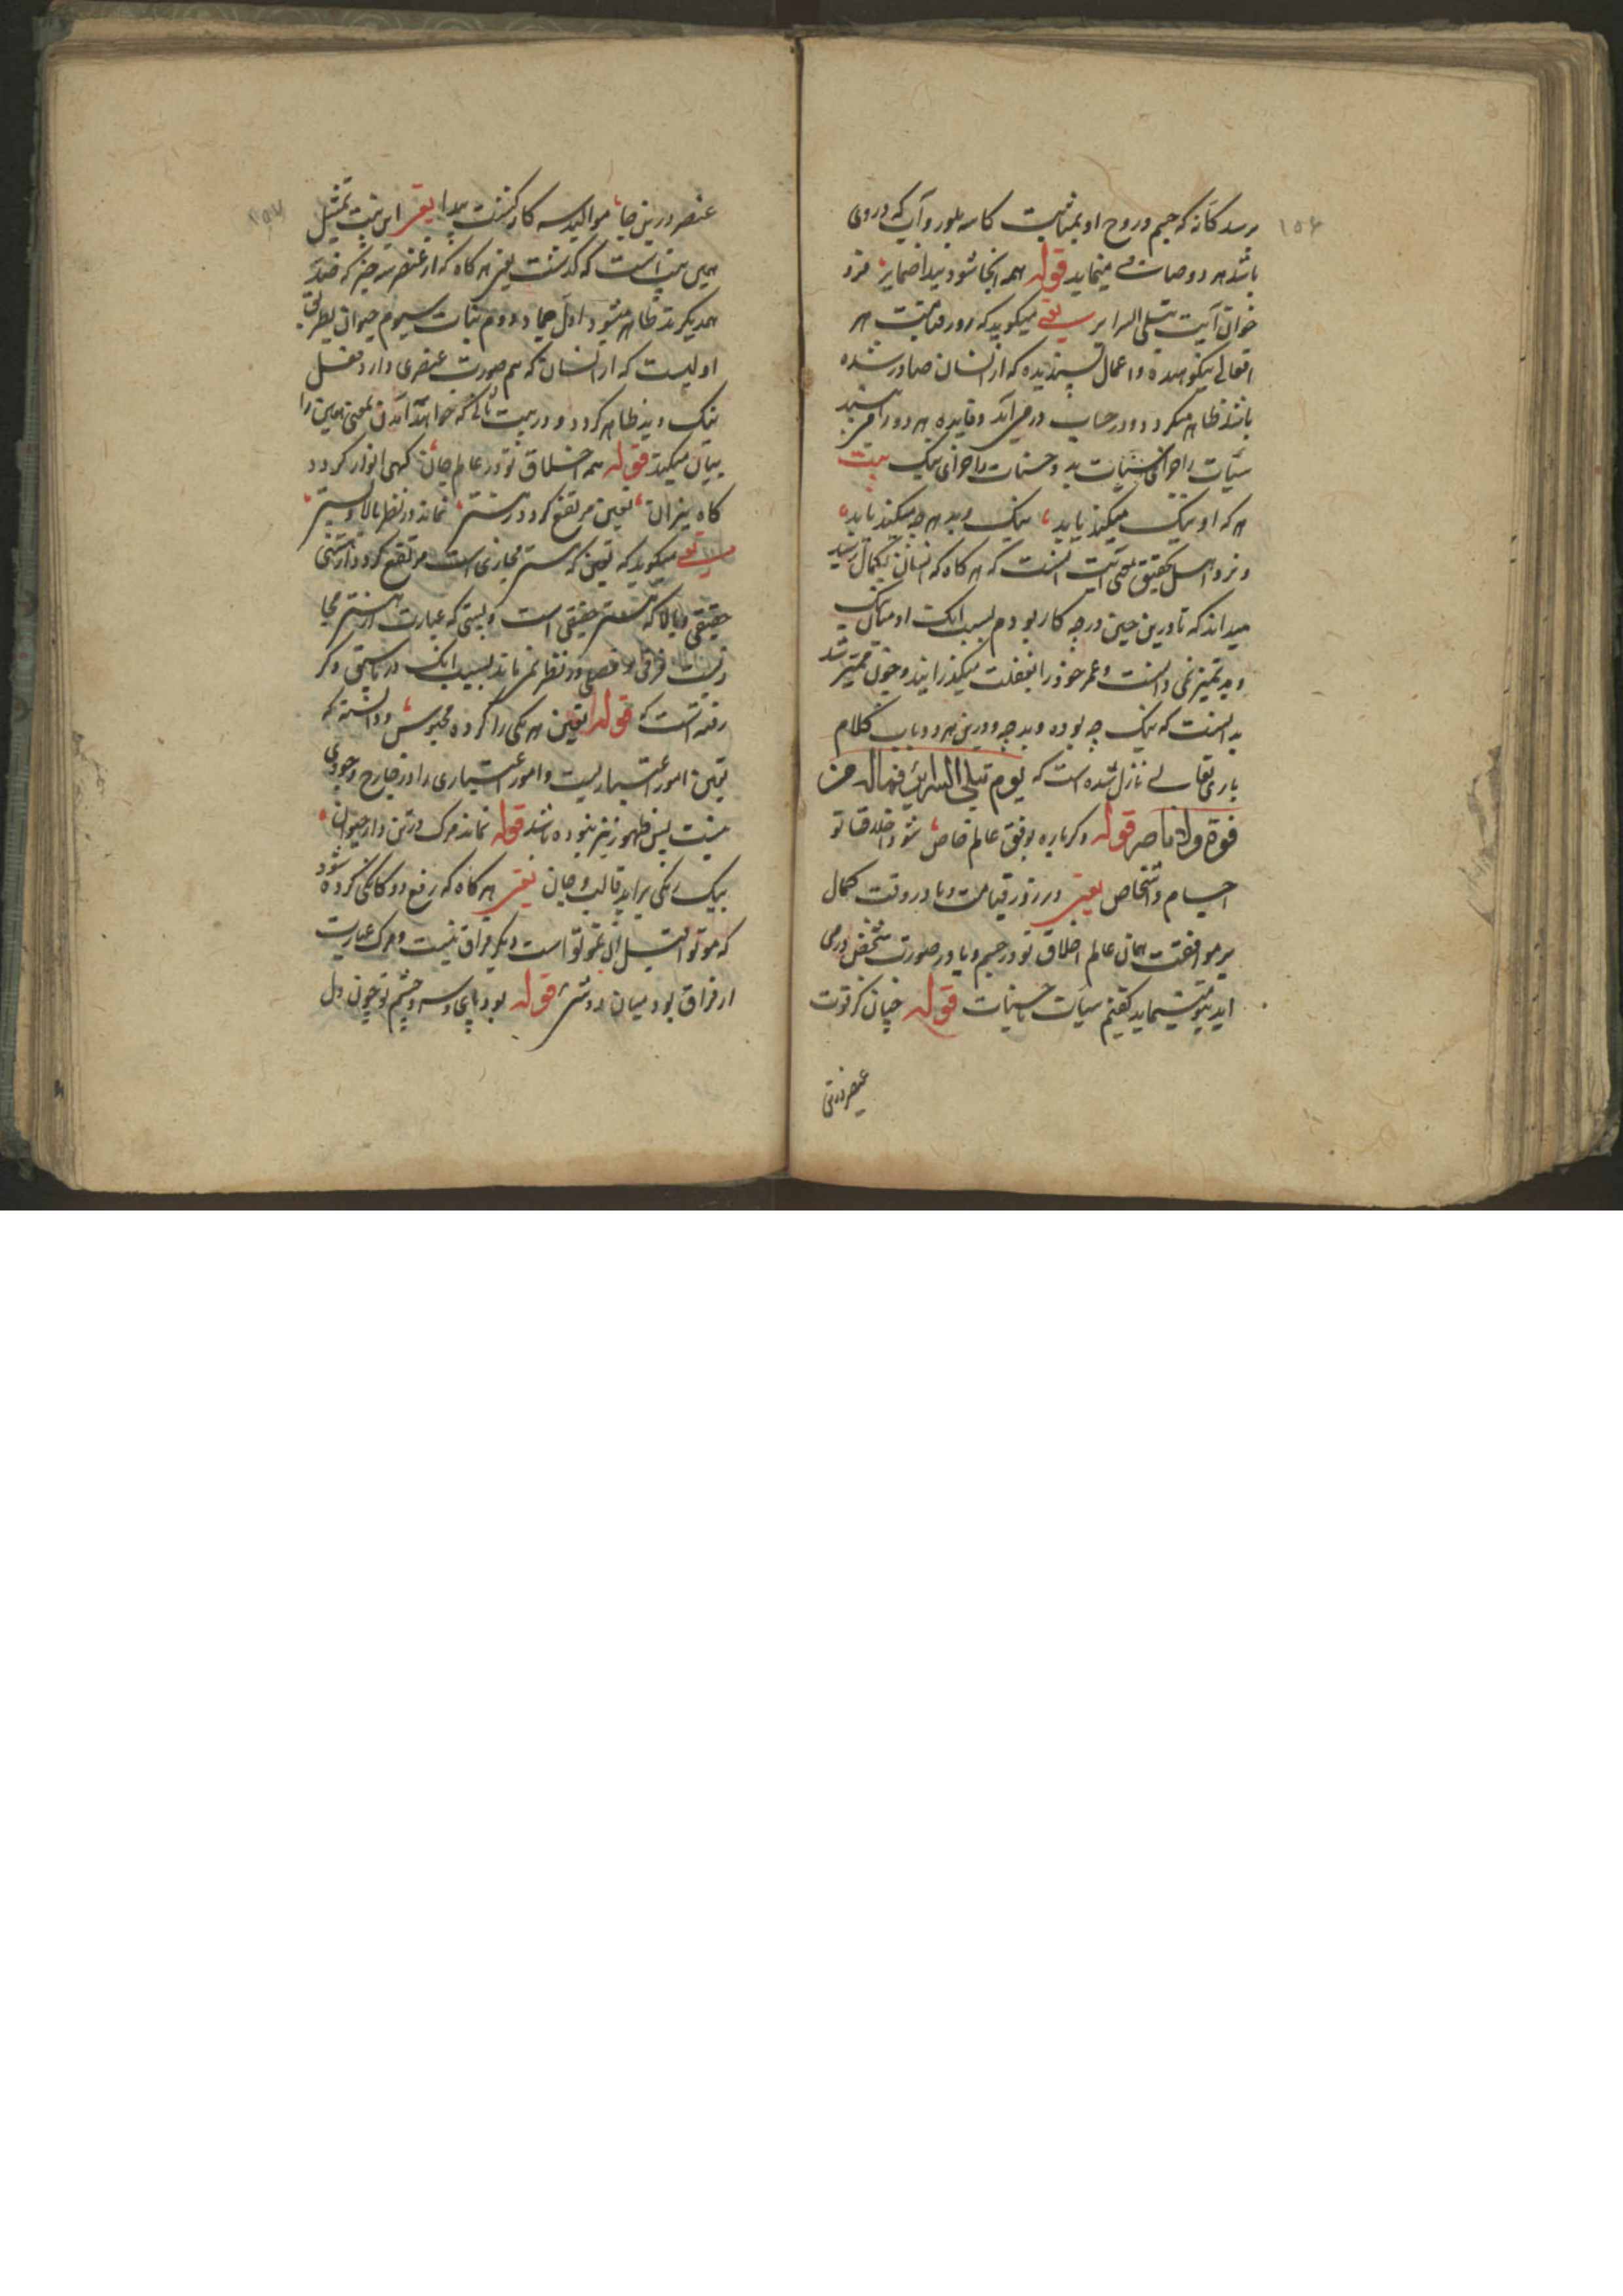 ۱۵۶
برسد کانه که جسم و روح او بمثابت کاسه بلور و آب که در وی
باشد هر دو صاف مینماید قوله همه آنجا شود پیدا ضمایر فرو
خوان آیت تبلی السرایر یعنی میگوید که روز قیامت هر
افعالی نیکوهیده و اعمال پسندیده که از انسان صادر شده
باشد ظاهر میکردد و در حساب در می آید و فایده هر دو را
سیئات را جزای سیئات بد و حسنات را جزای نیک بیت
هر که او نیک میکند یابد نیک و بد هر چه میکند یابد
و نزد اهل تحقیق معنی آیت اینست که هر کاه که انسان بکمال رسید
میداند که تا درین حین در چه کار بودم بسبب آنک او میان نیک
و بد تمیز نمی دانست و عمر خود را بغفلت میکذرانید و چون ممیز شد
بدانست که نیک چه بوده و بد چه و درین هر دو باب کلام
باری تعالی نازل شده است که یوم تبلی السرایر فماله من
قوة ولا ناصر قوله دکر باره بوفق عالم خاص شود اخلاق تو
اجسام و اشخاص یعنی در روز قیامت و یا در وقت کمال
بر موافقت همان عالم اخلاق تو در جسم و یا در صورت شخص در می
آید سیئات حسنات قوله چنان کز قوت
عنصر درین
۱۵۷
عنصر درین جا موالید سه کانه کشت پیدا یعنی این بیت تمثیل
همین بیت است که کذشت یعنی هر کاه که از عنصر سه چیز که ضد
همدیکرند ظاهر میشود اول جماد دوم نبات سیوم حیوان بطریق
اولیست که از انسان که هم صورت عنصری دارد فعل
نیک و بد ظاهر کردد و در بیت ثانی که خواهد آمدن معنی همین را
بیان میکند قوله همه اخلاق تو در عالم جان کهی انوار کردد
کاه نیران تعین مرتفع کردد ز هستی نماند در نظر بالا و پستی
یعنی میکوید که تعین که هستی مجازی است مرتفع کردد از هستی
حقیقی و بالا که هستی حقیقی است و پستی که عبارت از هستی مجا
زیست فرقی و فصلی در نظر نماند بسبب آنک در ماسبق ذکر
رفته است که قوله تعین هر یکی را کرده محبوس و دانسته که
تعین امور اعتباریست و امور اعتباری را در خارج وجودی
نیست پس ظهور نیز نبوده باشد قوله نماند مرک در تن دار حیوان
بیک رنکی براید قالب و جان یعنی هر کاه که رفع دوکانکی کرده شود
که موتوا قبل ان تموتوا است دیکر فراق نیست و مرک عبارت
از فراق بود میان دو شی قوله بود پای و سر و چشم تو چون دل